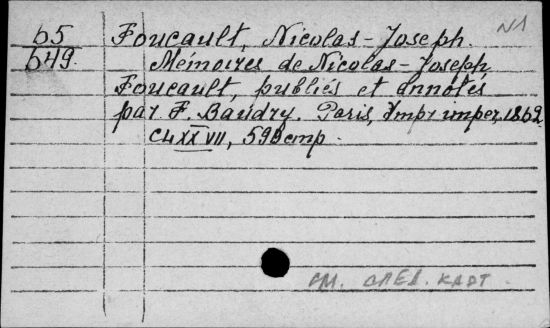 N1
65
649
Foucault, Nicolas-Joseph.
Mémoires de Nicolas-Joseph
Foucault, publiés et annotés
par F. Baudry. Paris, Impr imper, 1862.
CLXXVII, 593 cmp.
см. след. карт.